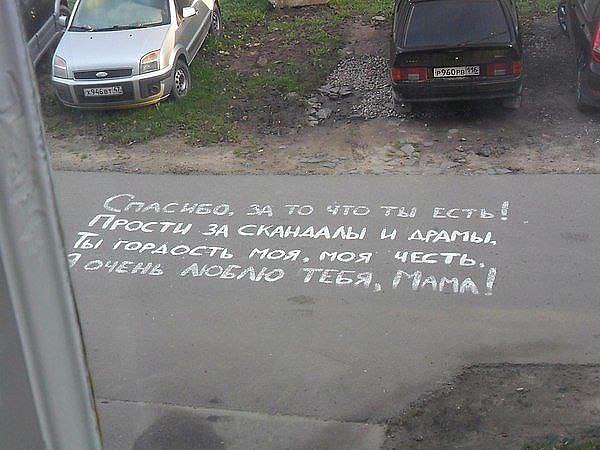 Х946ВТ 47
Р960РВ 116
Спасибо, за то что ты есть!
Прости за скандалы и драмы.
Ты гордость моя, моя честь.
Я очень люблю тебя, Мама!